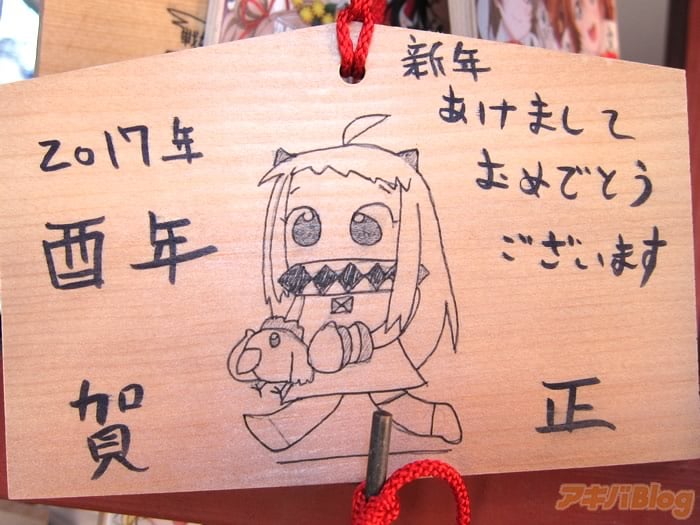 新年
あけまして
おめでとう
ございます
2017年
酉年
賀
正
アキバBlog